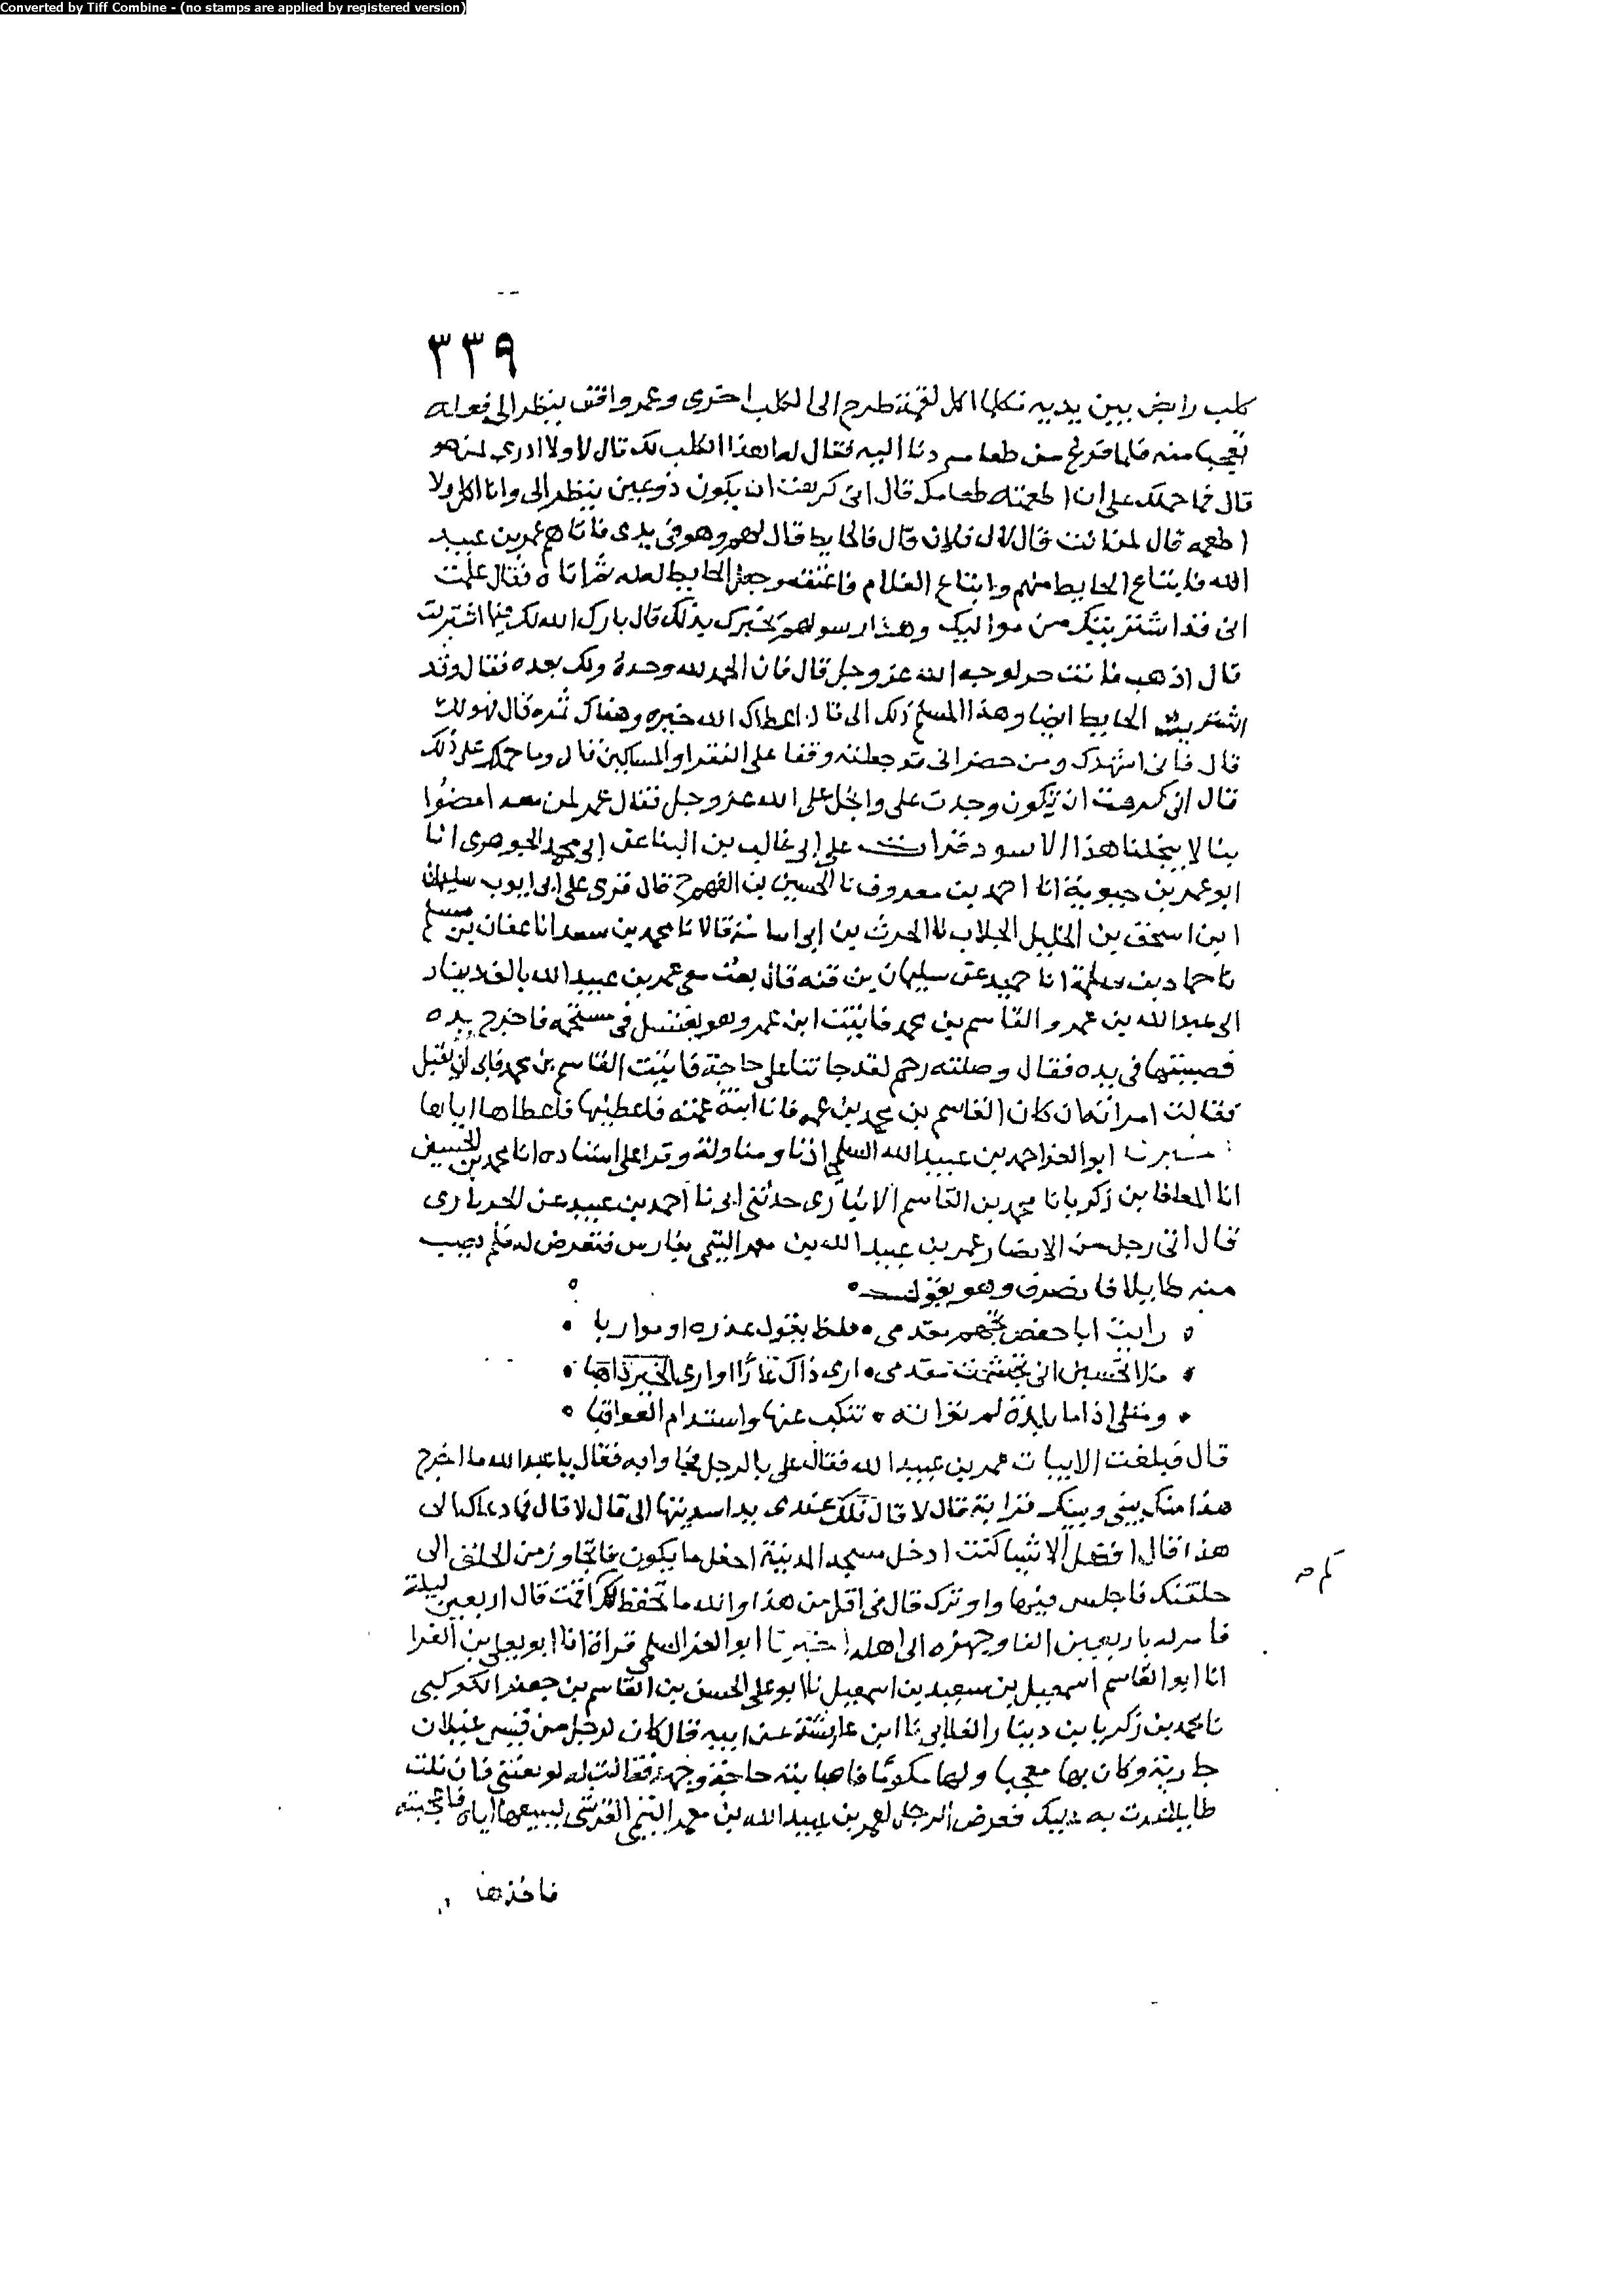 Converted by Tiff Combine - (no stamps are applied by registered version)
٣٣٩
كلب رابض بين يديه فكلما اكل لقمة طرح الى الكلب اخرى وعمر واقف ينظر الى فعله
تعجبا منه فلما فرغ من طعامه دنا اليه فقال له هذا الكلب لك قال لا ولا ادرى لمن هو
قال فما حملك على ان اطعمته طعامك قال انى كرهت ان يكون ذو عين ينظر الى وانا اكل ولا
اطعمه قال لمن انت قال لال فلان قال فالحايط قال لهم وهو فى يدى فاتاهم عمر بن عبيد
الله فابتاع الحايط منهم وابتاع الغلام فاعتقه وجعل الحايط له ثم اتاه فقال علمت
انى قد اشتريتك من مواليك وهذا رسولهم يخبرك بذلك قال بارك الله لك فيما اشتريت
قال اذهب فانت حر لوجه الله عز وجل قال فان الحمد لله وحده ولك بعده فقال وقد
اشتريت الحايط ايضا وهذا المسلم ذلك الى قال اعطاك الله خيره وهناك ثمره قال فهو لك
قال فانى اشهدك ومن حضر انى قد جعلته وقفا على الفقرا والمساكين قال وما حملك على ذلك
قال انى كرهت ان يكون وجدت على وابخل على الله عز وجل فقال عمر لمن معه امضوا
بنا لا يبخلنا هذا الاسود قرات على ابى غالب بن البنا عن ابى محمد الجوهرى انا
ابو عمر بن حيوية انا احمد بن معروف نا الحسين بن الفهم ح قال قرى على ابى ايوب سليمان
ابن اسحق بن الخليل الجلاب نا الحرث بن ابى اسامة قالا نا محمد بن سعد انا عفان بن مسلم
نا حماد بن سلمة انا حميد عن سليمان بن قنه قال بعث معى عمر بن عبيد الله بالف دينار
الى عبد الله بن عمر والقاسم بن محمد فاتيت ابن عمر وهو يغتسل فى مستحمه فاخرج يده
فصببتها فى يده فقال وصلته رحم لقد جاتنا على حاجة فاتيت القاسم بن محمد فابى ان يقبل
فقالت امراته ان كان القاسم بن محمد بن عمه فانا ابنة عمته فاعطنيها فاعطاها اياها
اخبرنا ابو العز احمد بن عبيد الله السلمى اذنا ومناولة وقرا على اسناده انا محمد بن الحسين
انا المعافا بن زكريا نا محمد بن القاسم الانبارى حدثنى ابى نا احمد بن عبيد عن الحرمازى
قال اتى رجل من الانصار عمر بن عبيد الله بن معمر التيمى بفارس فتعرض له فلم يصب
منه طايلا فانصرف وهو يقول
رايت ابا حفص تجهم مقدمى فلط بقول عذره او مواربا
فلا تحسبن انى تجشمت مقدمى ارى ذاك عارا او ارى الخير ذاهبا
ومثلى اذا ما بلدة لم تواته تنكب عنها واستدام العواقبا
قال فبلغت الابيات عمر بن عبيد الله فقال على بالرجل فجاوا به فقال يا عبد الله ما اخرج
هذا منك بينى وبينك قرابة قال لا قال فلك عندى يد اسديتها الى قال لا قال فما دعاك الى
هذا قال افضل الاشيا كنت ادخل مسجد المدينة احفل ما يكون فاتجاوز من الحلق الى
حلقتك فاجلس فيها واوثرك قال فى اقل من هذا والله ما تحفظ لك كم اقمت قال اربعين ليلة
فامر له باربعين الفا وجهزه الى اهله اخبرنا ابو العز السلمى قراة انا ابو يعلى بن الفرا
انا ابو القاسم اسمعيل بن سعيد بن اسمعيل نا ابو على الحسن بن القاسم بن جعفر الكوكبى
نا محمد بن زكريا بن دينار الغلابى نا ابن عايشة عن ابيه قال كان لرجل من قيس عيلان
جارية وكان بها معجبا ولها مكرما فاصابته حاجة وجهد فقالت له لو بعتنى فان نلت
طايلا عدت به عليك فعرض الرجل لعمر بن عبيد الله بن معمر التيمى القرشى ليبيعها اياه فاعجبته
فاخذها